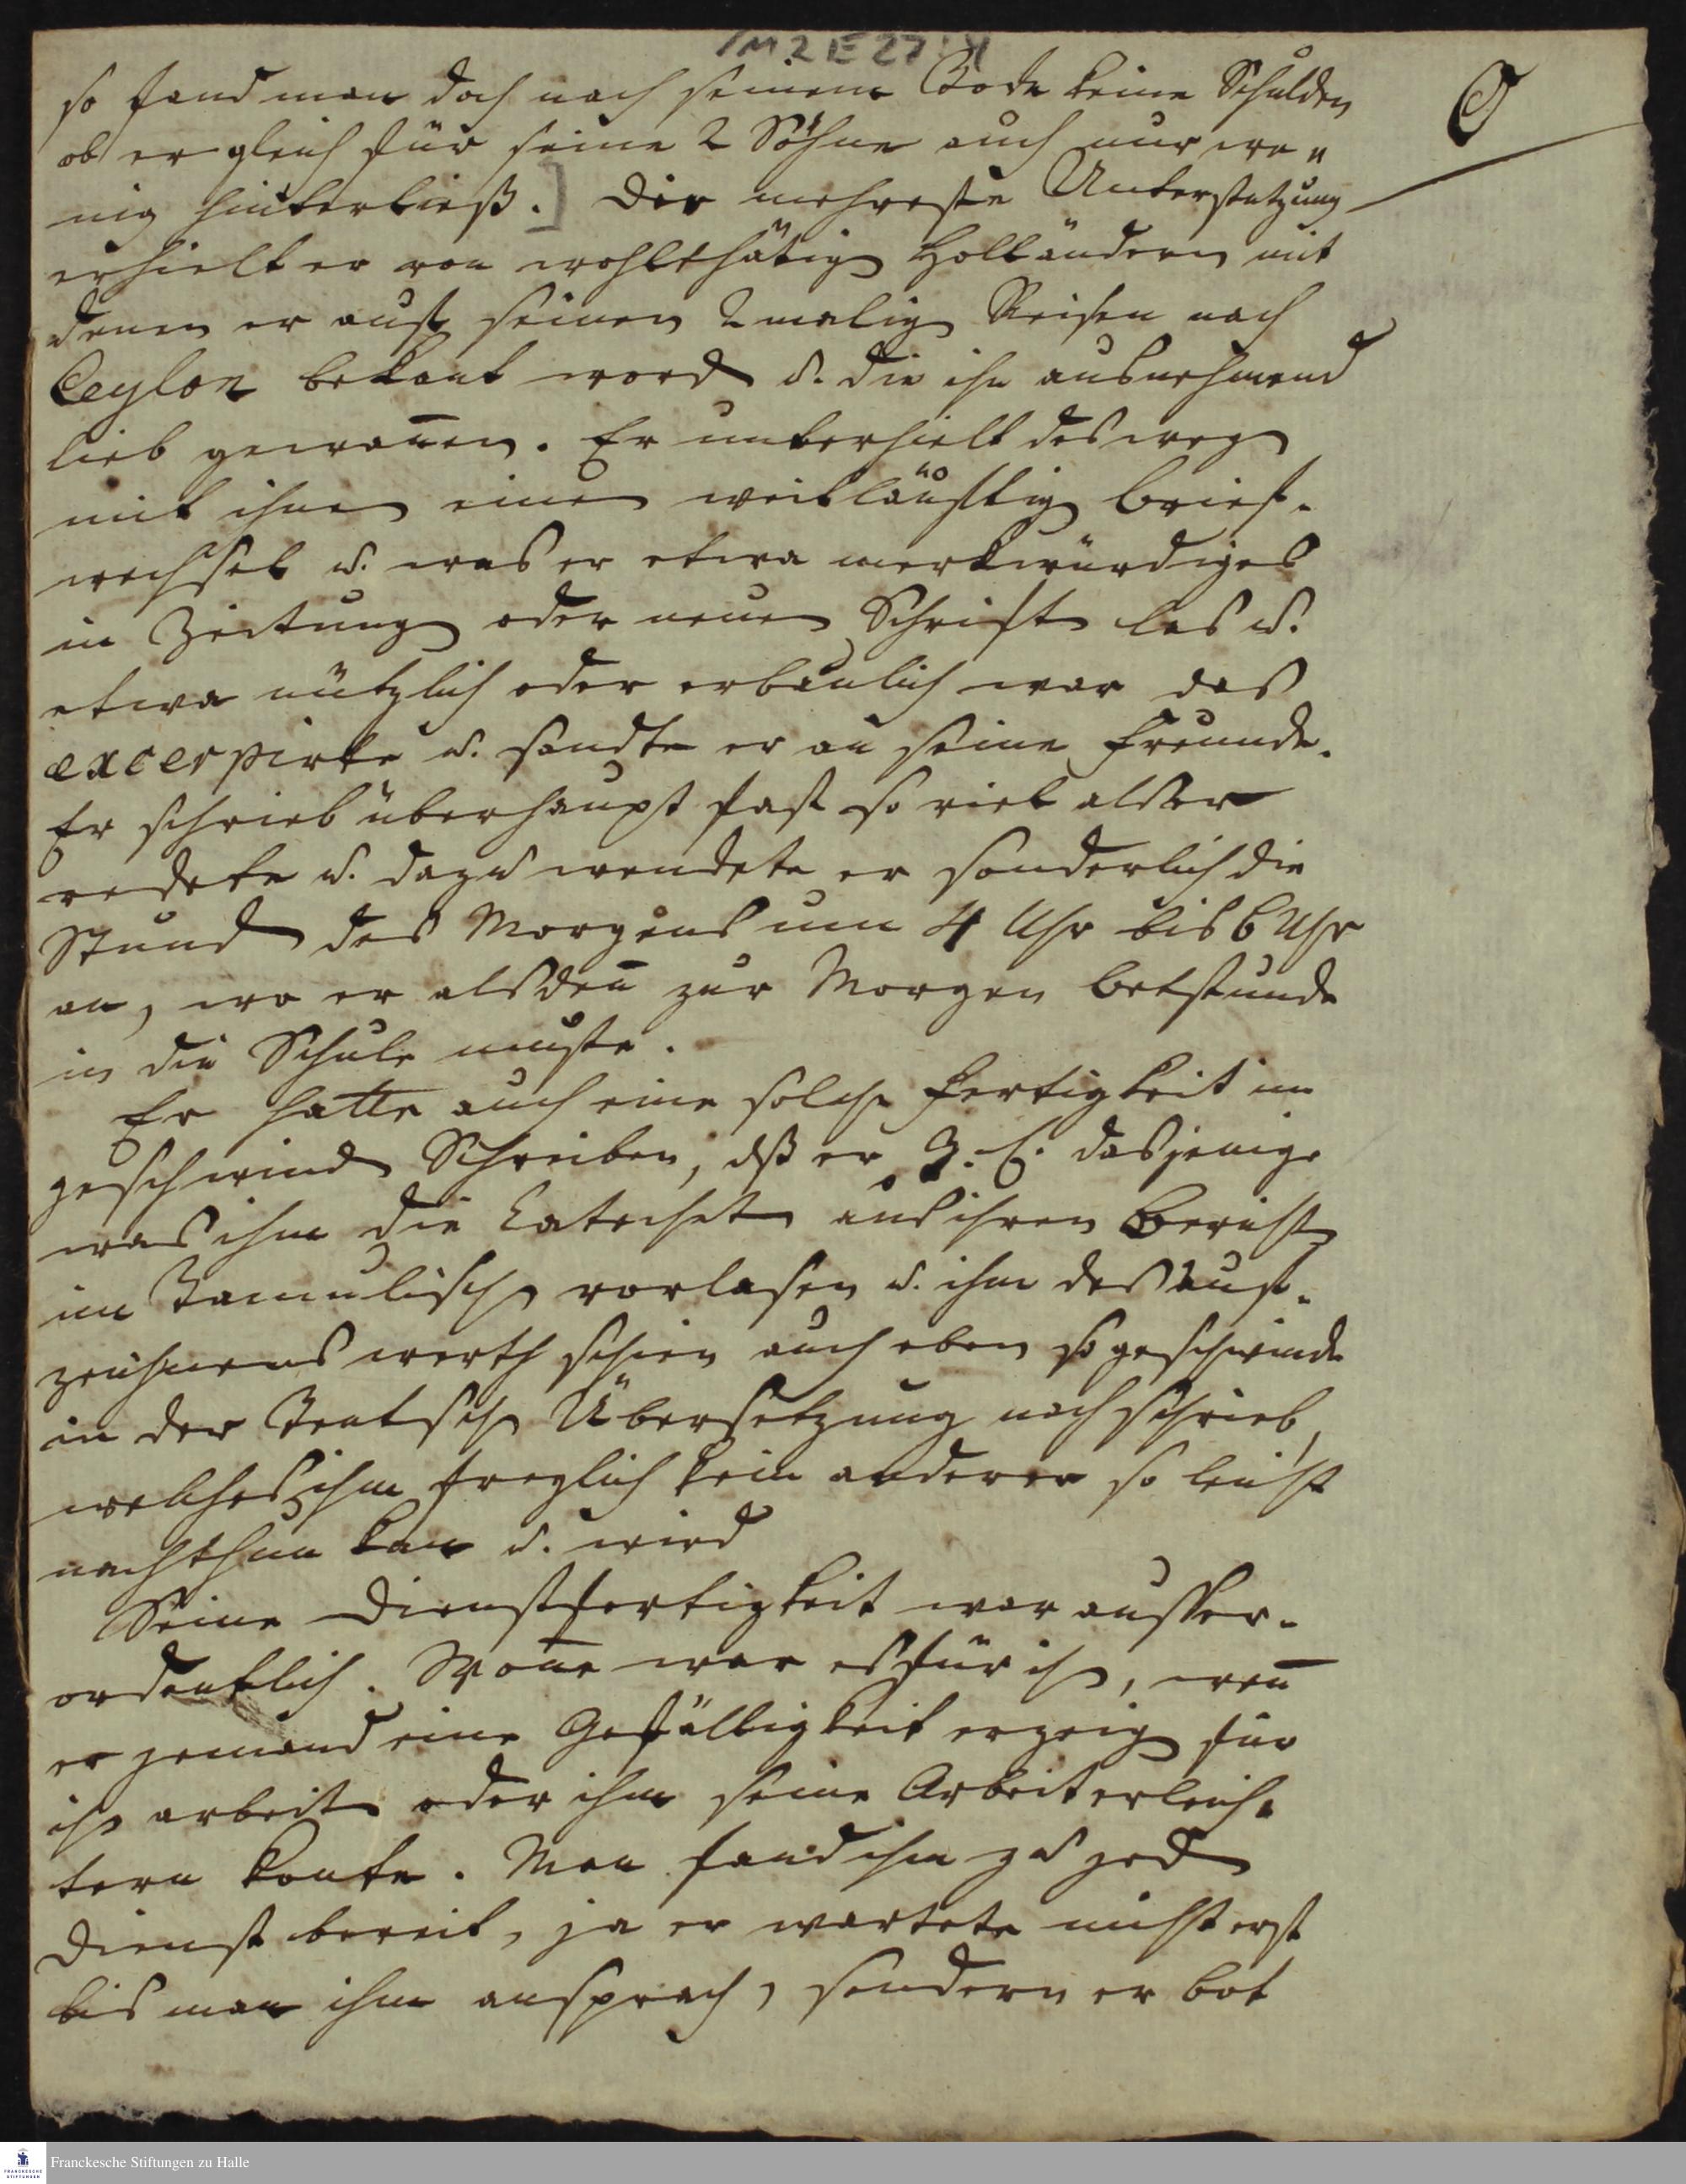 1M2E27:4
so fand man doch nach seinem Tode keine Schulden
ob er gleich für seine 2 Söhne auch nur we„
nig hinterließ.] Die mehreste Unterstützung
erhielt er von wohlthätig Holländern mit
denen er auf seinen 2maligen Reisen nach
Ceylon bekant word u. die ihn ausnehmend
lieb gewañen. Er unterhielt desweg
mit ihnen einen weitläuftig Brief-
wechsel u. was er etwa merkwürdiges
in Zeitung oder neuen Schriften las u.
etwa nützlich oder erbaulich war das
excerpirte u. sandte er an seine Freunde.
Er schrieb überhaupt fast so viel als er
redete u. dazu wendete er sonderlich die
Stunden des Morgens um 4 Uhr bis 6 Uhr
an, wo er alsdeñ zur Morgen betstunde
in die Schule muste.
Er hatte auch eine solche Fertigkeit im
geschwinden Schreiben, dß er z. E. dasjenige
was ihm die Catecheten aus ihren Bericht
im Tamulischen vorlasen u. ihm des auf-
zeichnens werth schien auch eben so geschwinde
in der Teutschen Übersetzung nachschrieb,
welches ihm freylich kein anderer so leicht
nachthun kan u. wird
Seine Dienstfertigkeit war ausser-
ordentlich. Woñe war es für ihn, weñ
er jemand eine Gefälligkeit erzeigen für
ihn arbeiten oder ihm seine Arbeit erleich-
tern konte. Man fand ihn zu jed
Dienst bereit, ja er wartete nicht erst
bis man ihn ansprach, sondern er bot
Franckesche Stiftungen zu Halle
FRANCKESCHE
STIFTUNGEN